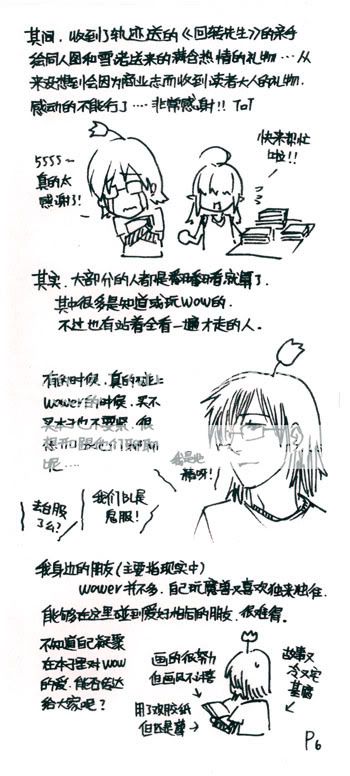 其间，收到了轨迹送的《回转先生》的亲手
绘同人图和雪老送来的满含热情的礼物…从
来没想到会因为商业志而收到读者大人的礼物，
感动的不能行了…非常感谢!! ToT
5555~
真的太
感谢了!
快来帮忙
啦!!
其实，大部分的人都是翻翻看看就算了，
其中很多是知道或玩wow的，
不过也有站着全看一遍才走的人。
有的时候，真的碰上
wower的时候，买不
买本子也不要紧，很
想和跟他们聊聊
呢…
我是地
精呀!
去台服
了么?
我们以是
鬼服!
我身边的朋友(主要指现实中)
wower并不多，自己玩魔兽又喜欢独来独往，
能够在这里碰到爱好相启的朋友，很难得。
不知道自己凝聚
在本子里对wow
的爱，能否传达
给大家呢?
画的很努力
但画风不搭
用了双胶纸
但还是薄
故事又
冷又宅
甚腐
P6